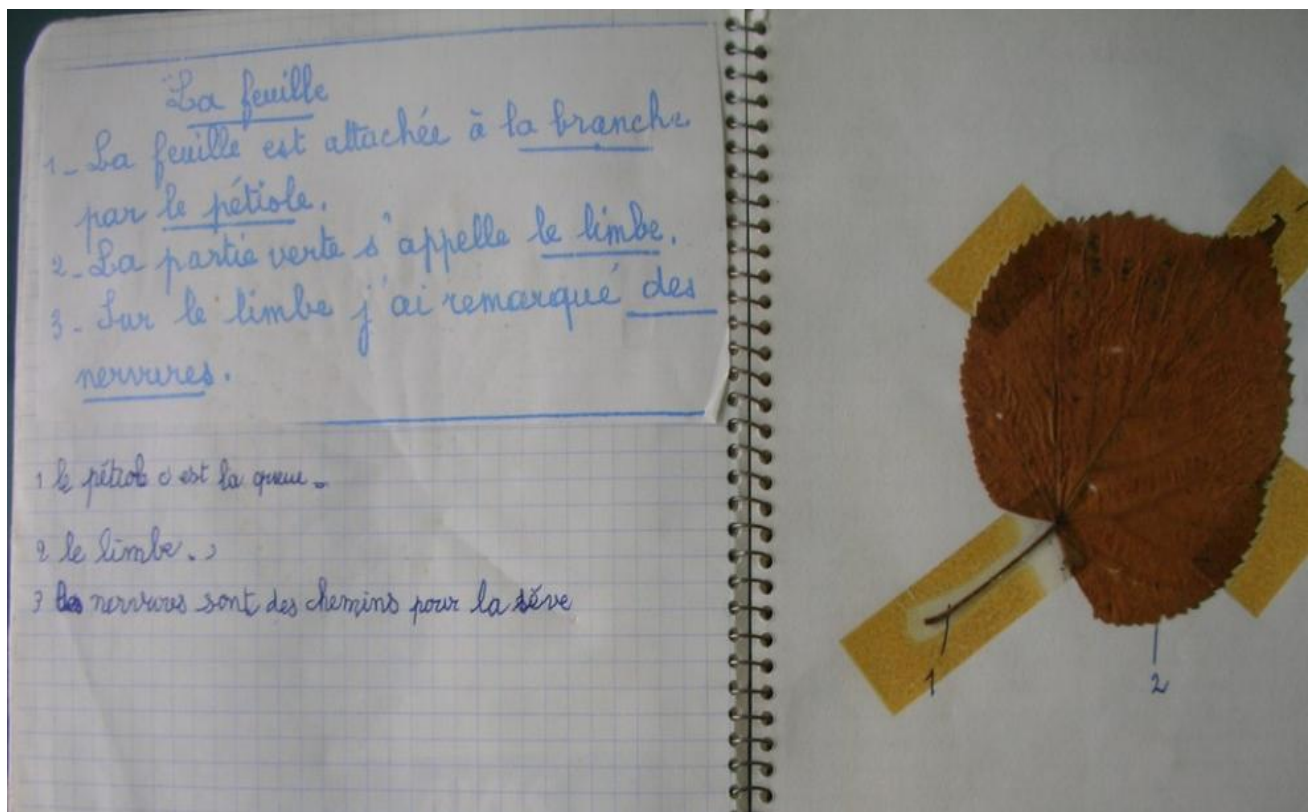 La feuille
1 - La feuille est attachée à la branche
par le pétiole.
2 - La partie verte s'appelle le limbe.
3 - Sur le limbe j'ai remarqué des
nervures.
1 le pétiole c'est la queue.
2 le limbe.
3 les nervures sont des chemins pour la sève
1
2